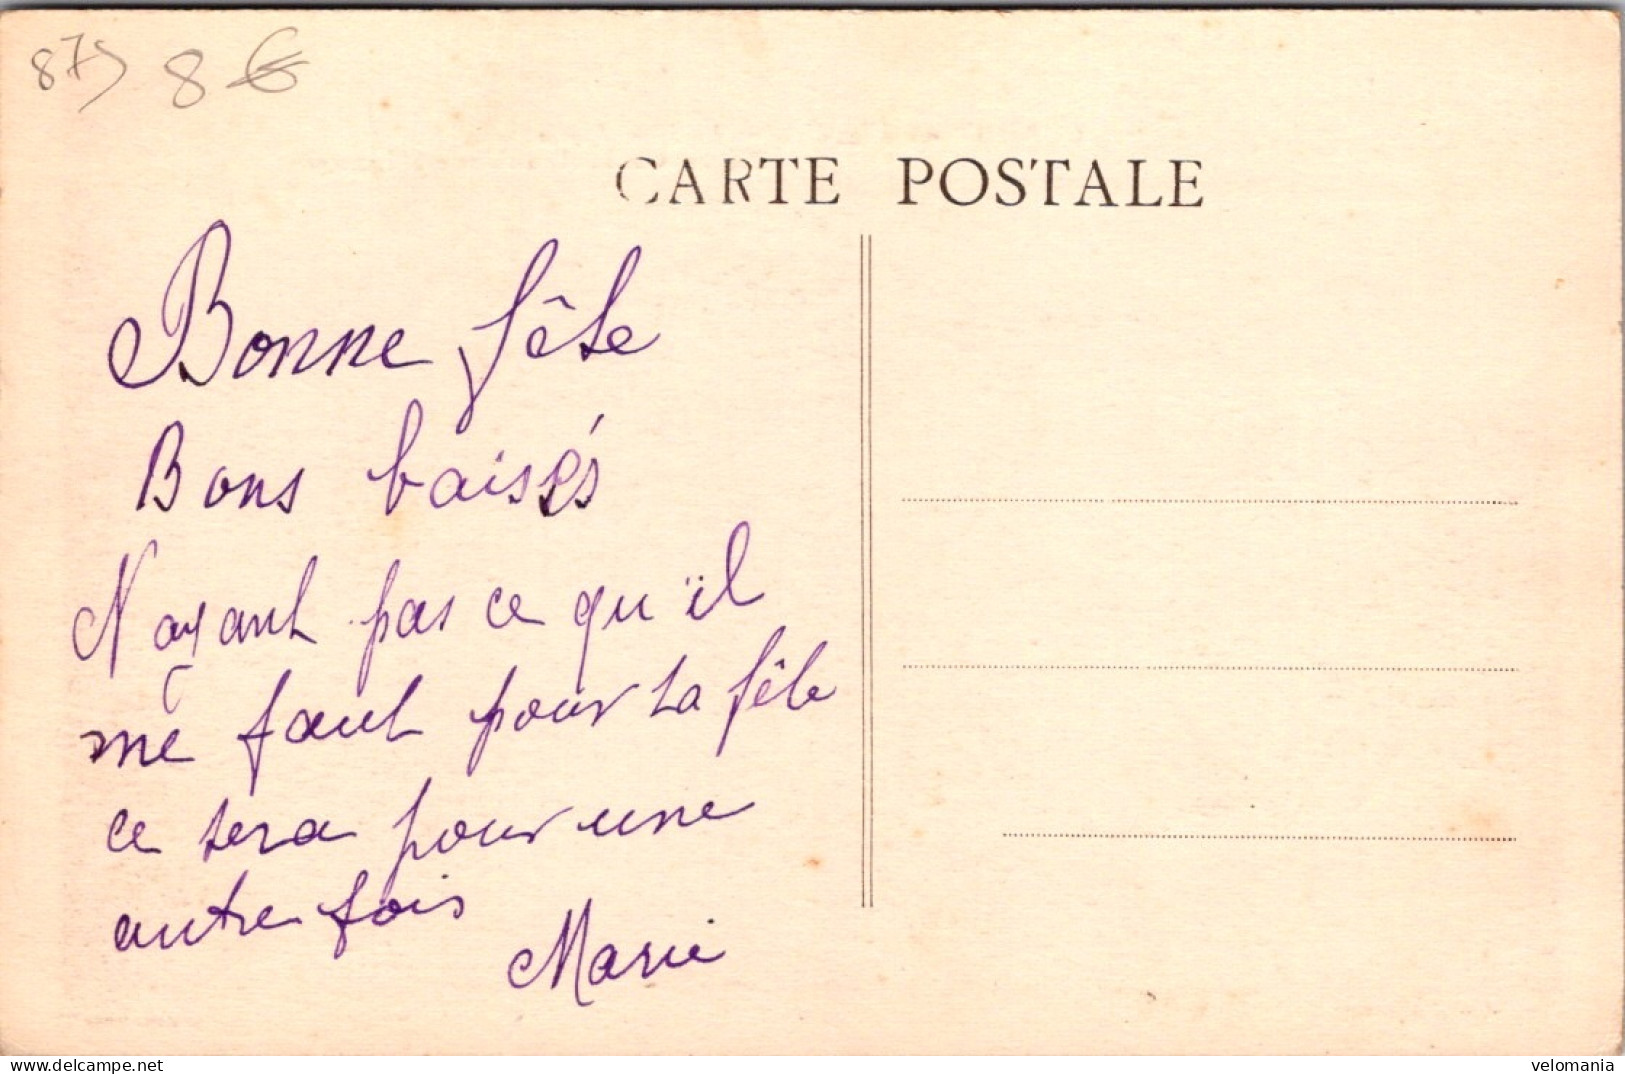 875 8 €
CARTE POSTALE
Bonne fête
Bons baisés
N'ayant pas ce qu'il
me faut pour ta fête
ce sera pour une
autre fois
Marie
www.delcampe.net
velomania